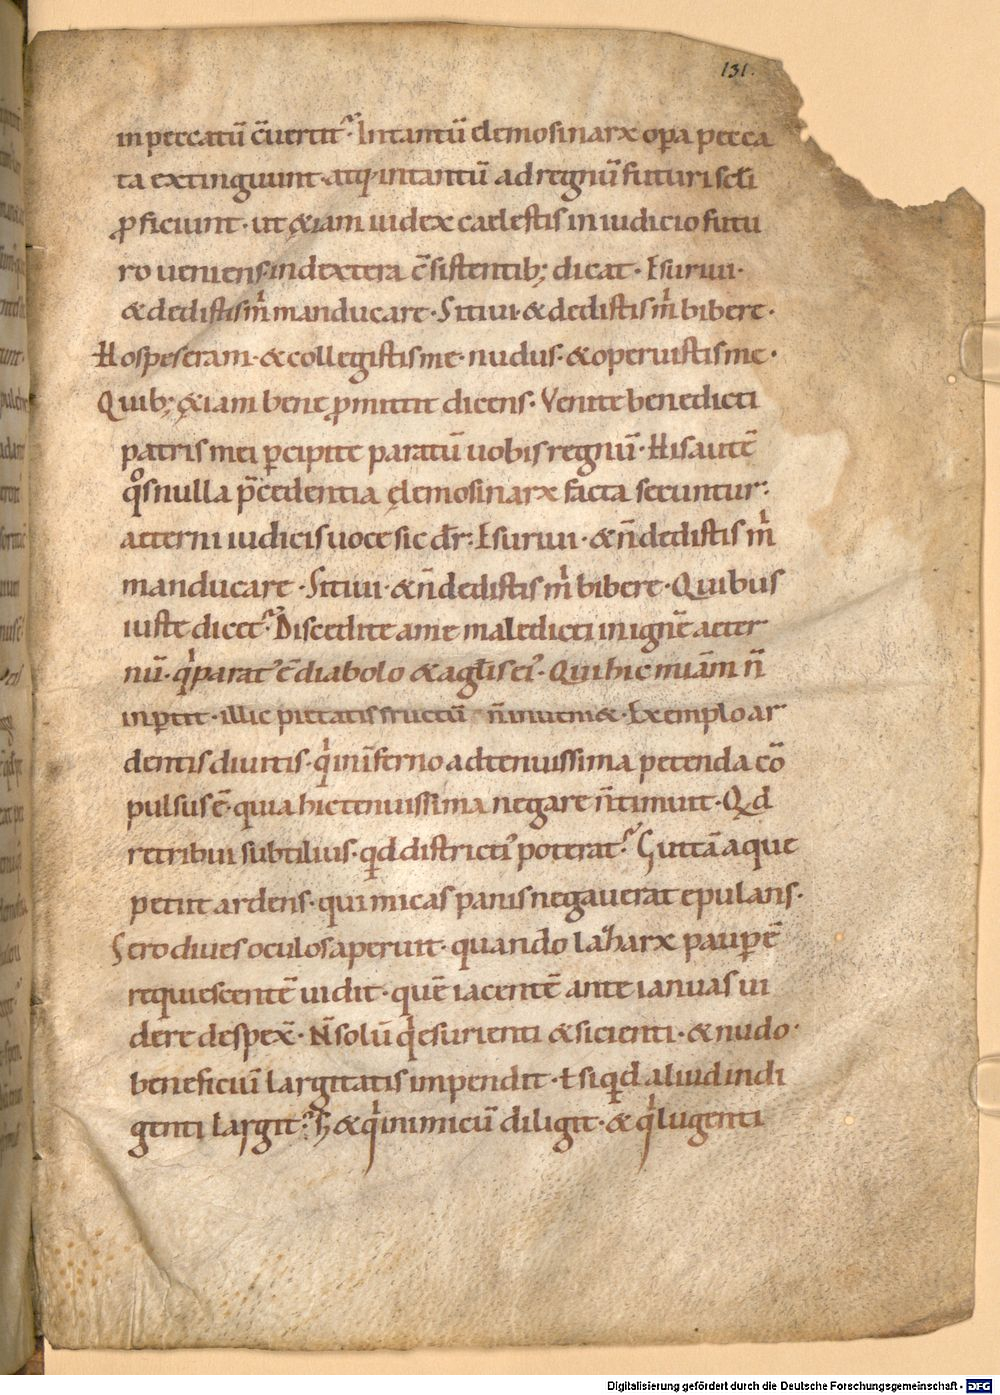 131.
in peccatū c̄uertit᷑. Intantū elemosinarx op̄a pecca
ta extinguunt· atq; intantū ad regnū futuri sc̄li
ꝓficiunt· ut &̨iam iudex caelestis in iudicio futu
ro ueniens, in dextera c̄sistentib; dicat· Esuriui·
& dedistis m̄ manducare· Sitiui· & dedistis m̄ bibere·
Hospes eram· & collegistis me· nudus· & operuistis me·
Quib; &̨iam bene ꝓmittit dicens· Venite benedicti
patris mei ꝑcipite paratū uobis regnū· His autē
qͦs nulla p̄cedentia ęlemosinarx facta secuntur:
aeterni iudicis uoce sic dr̄: Esuriui· & n̄ dedistis m̄
manducare· Sitiui· & n̄ dedistis m̄ bibere· Quibus
iuste dicet᷑. Discedite a me maledicti in ignē aeter
nū· qͥ parat᷑ ē diabolo & agl̄is ei᷒· Qui hic miām n̄
inꝑtit· illic pietatis fructū n̄ inueni&· Exemplo ar
dentis diuitis· qͥ in inferno ad tenuissima petenda cō
pulsus ē· quia hic tenuissima negare n̄ timuit· Qd
retribui subtilius· qd districti᷒ poterat᷑ Guttā aque
petiit ardens· qui micas panis negauerat epulans·
Sero diues oculos aperuit· quando lazarx pauꝑē
requiescentē uidit· quē iacentē ante ianuas ui
dere despex̄· N̄ solū qͥ esurienti & sicienti· & nudo·
beneficiū largitatis inpendit· t si qd aliud indi
genti largit᷑: s; & qͥ inimicū diligit· & qͥ lugenti
Digitalisierung gefördert durch die Deutsche Forschungsgemeinschaft - DFG